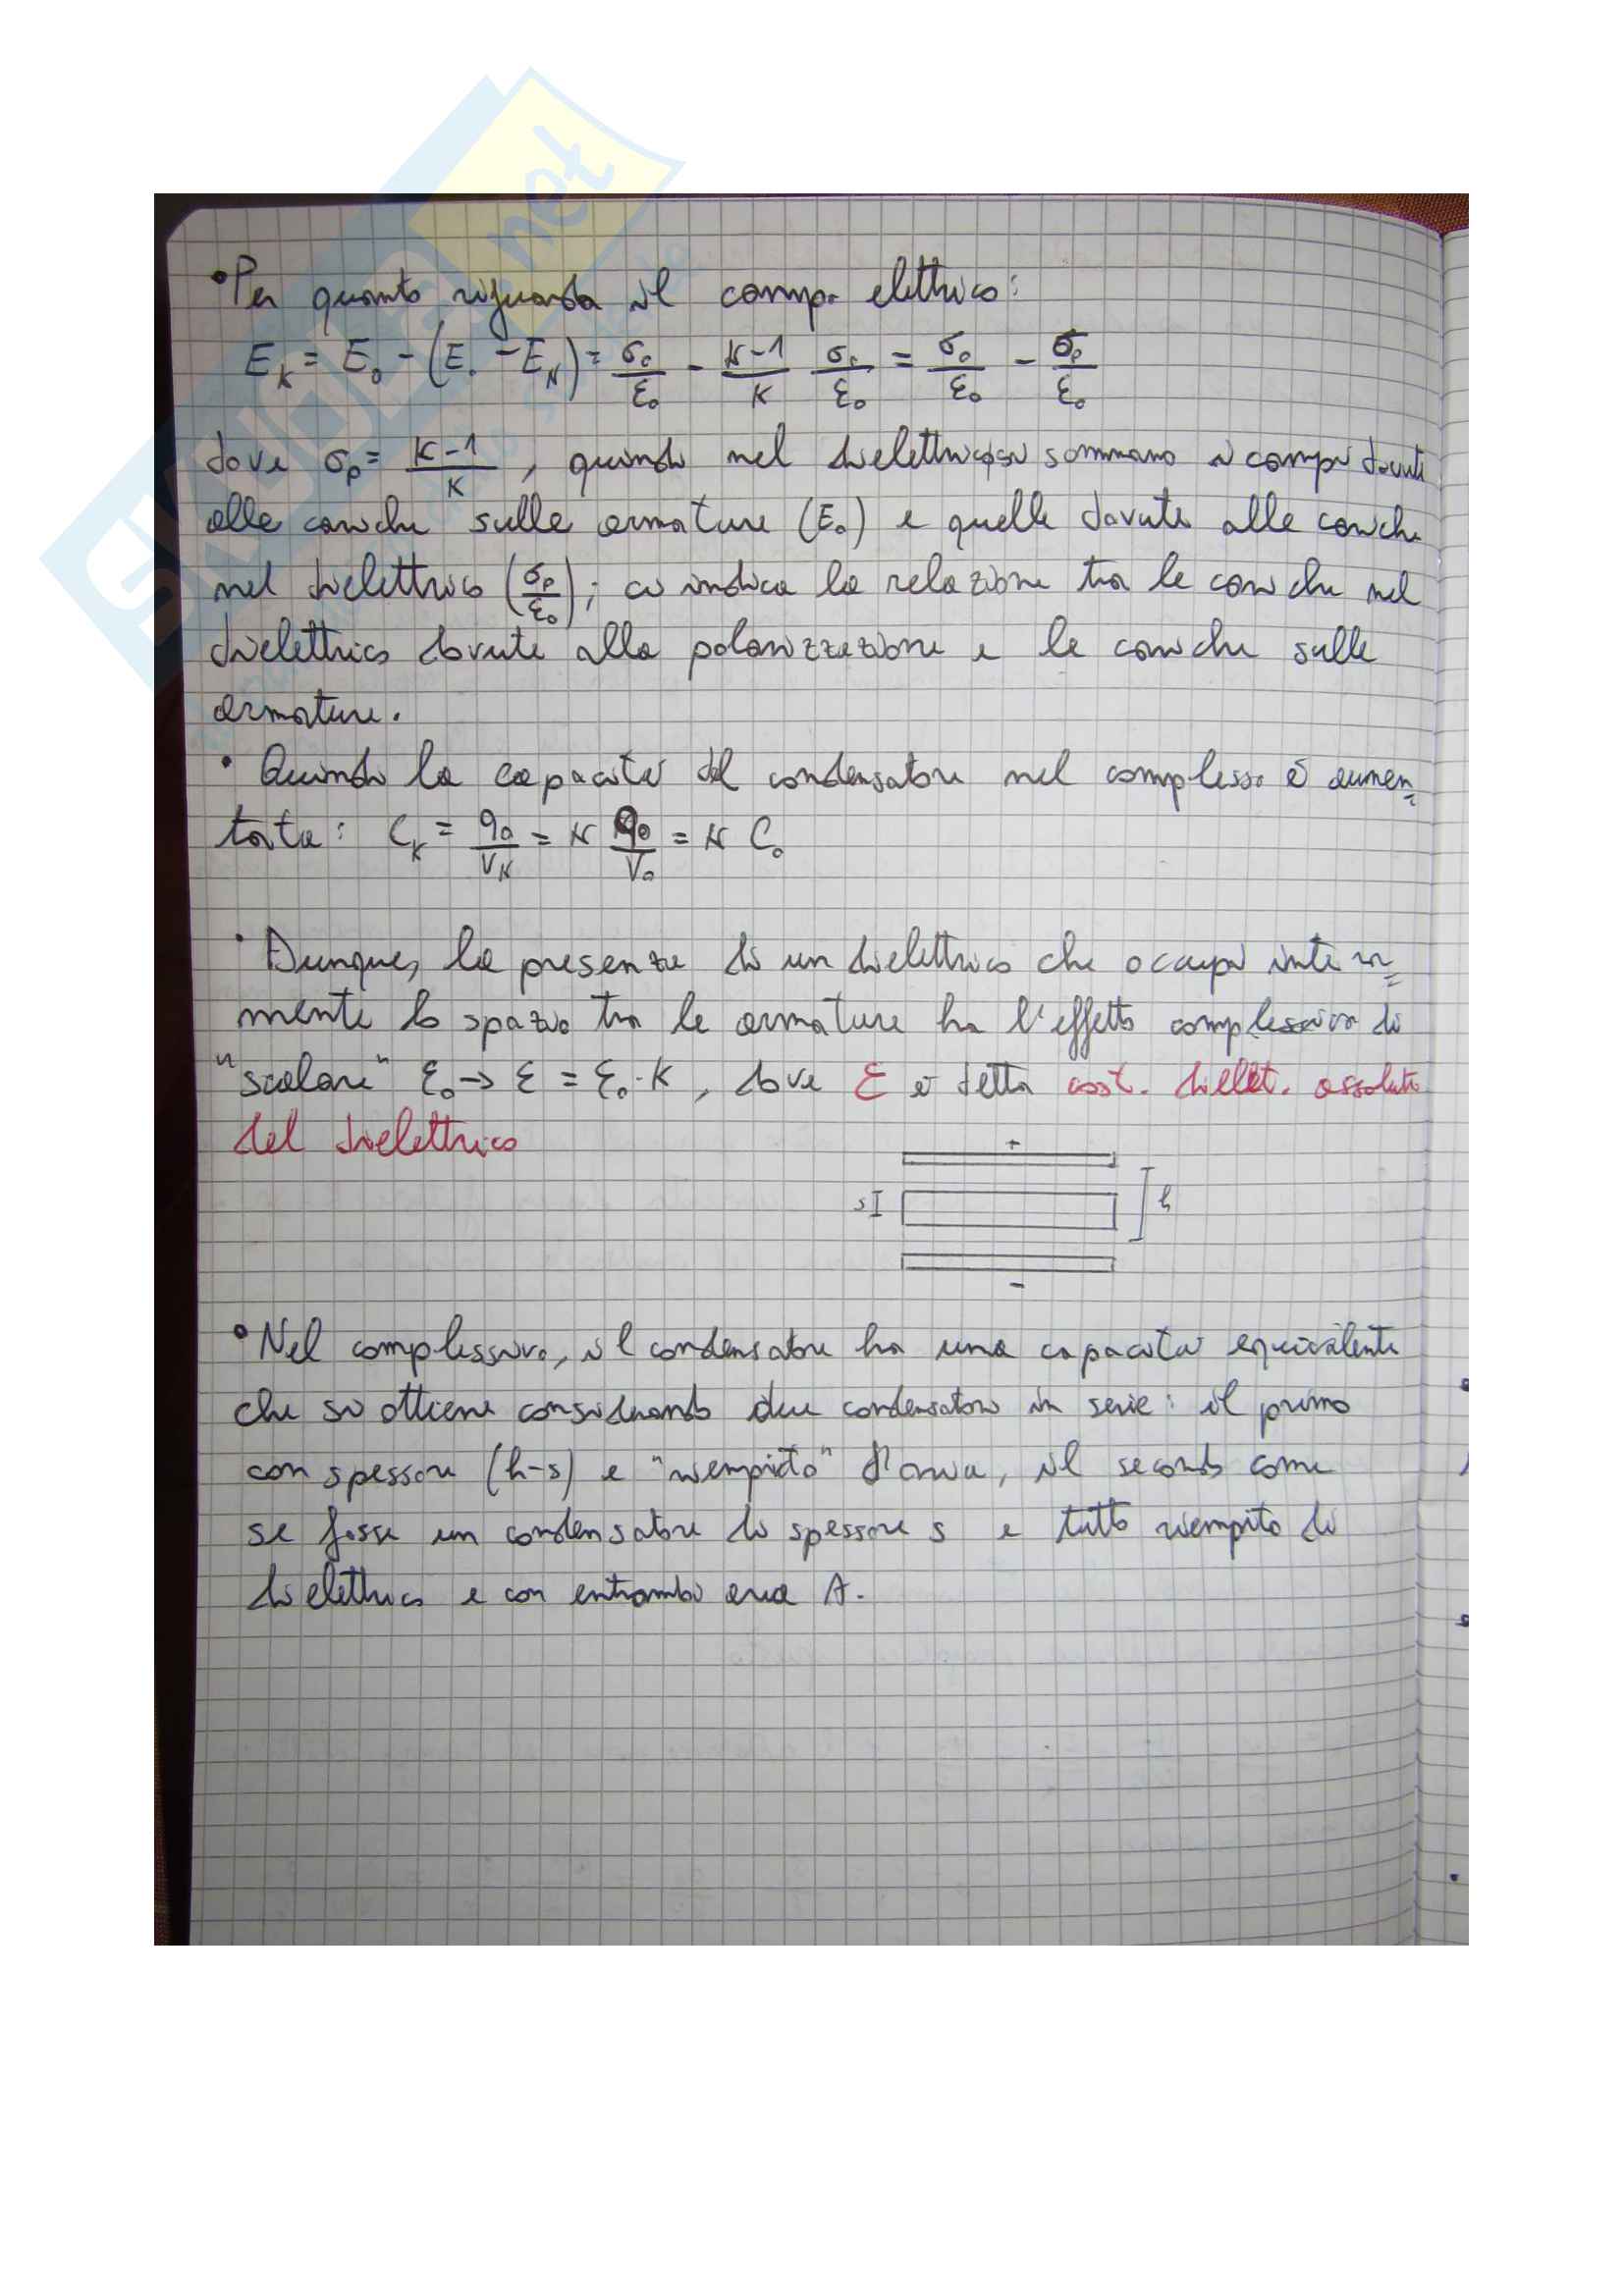 •Per quanto riguarda il campo elettrico:
E_K = E_0 - (E_0 - E_K) = σ_0/ε_0 - K-1/K σ_0/ε_0 = σ_0/ε_0 - σ_p/ε_0
dove σ_p = K-1/K , quindi nel dielettrico si sommano i campi dovuti
alle cariche sulle armature (E_0) e quelle dovute alle cariche
nel dielettrico (σ_p/ε_0); ci indica la relazione tra le cariche nel
dielettrico dovute alla polarizzazione e le cariche sulle
armature.
• Quindi la capacità del condensatore nel complesso è aumen=
tata: C_K = q_0/V_K = K q_0/V_0 = K C_0
• Dunque, la presenza di un dielettrico che occupi intera=
mente lo spazio tra le armature ha l'effetto complessivo di
"scalare" ε_0 → ε = ε_0 · K , dove ε è detta cost. dielet. assoluta
del dielettrico
+
s h
-
• Nel complessivo, il condensatore ha una capacità equivalente
che si ottiene considerando due condensatori in serie: il primo
con spessore (h-s) e "riempito" d'aria, il secondo come
se fosse un condensatore di spessore s e tutto riempito di
dielettrico e con entrambi area A.